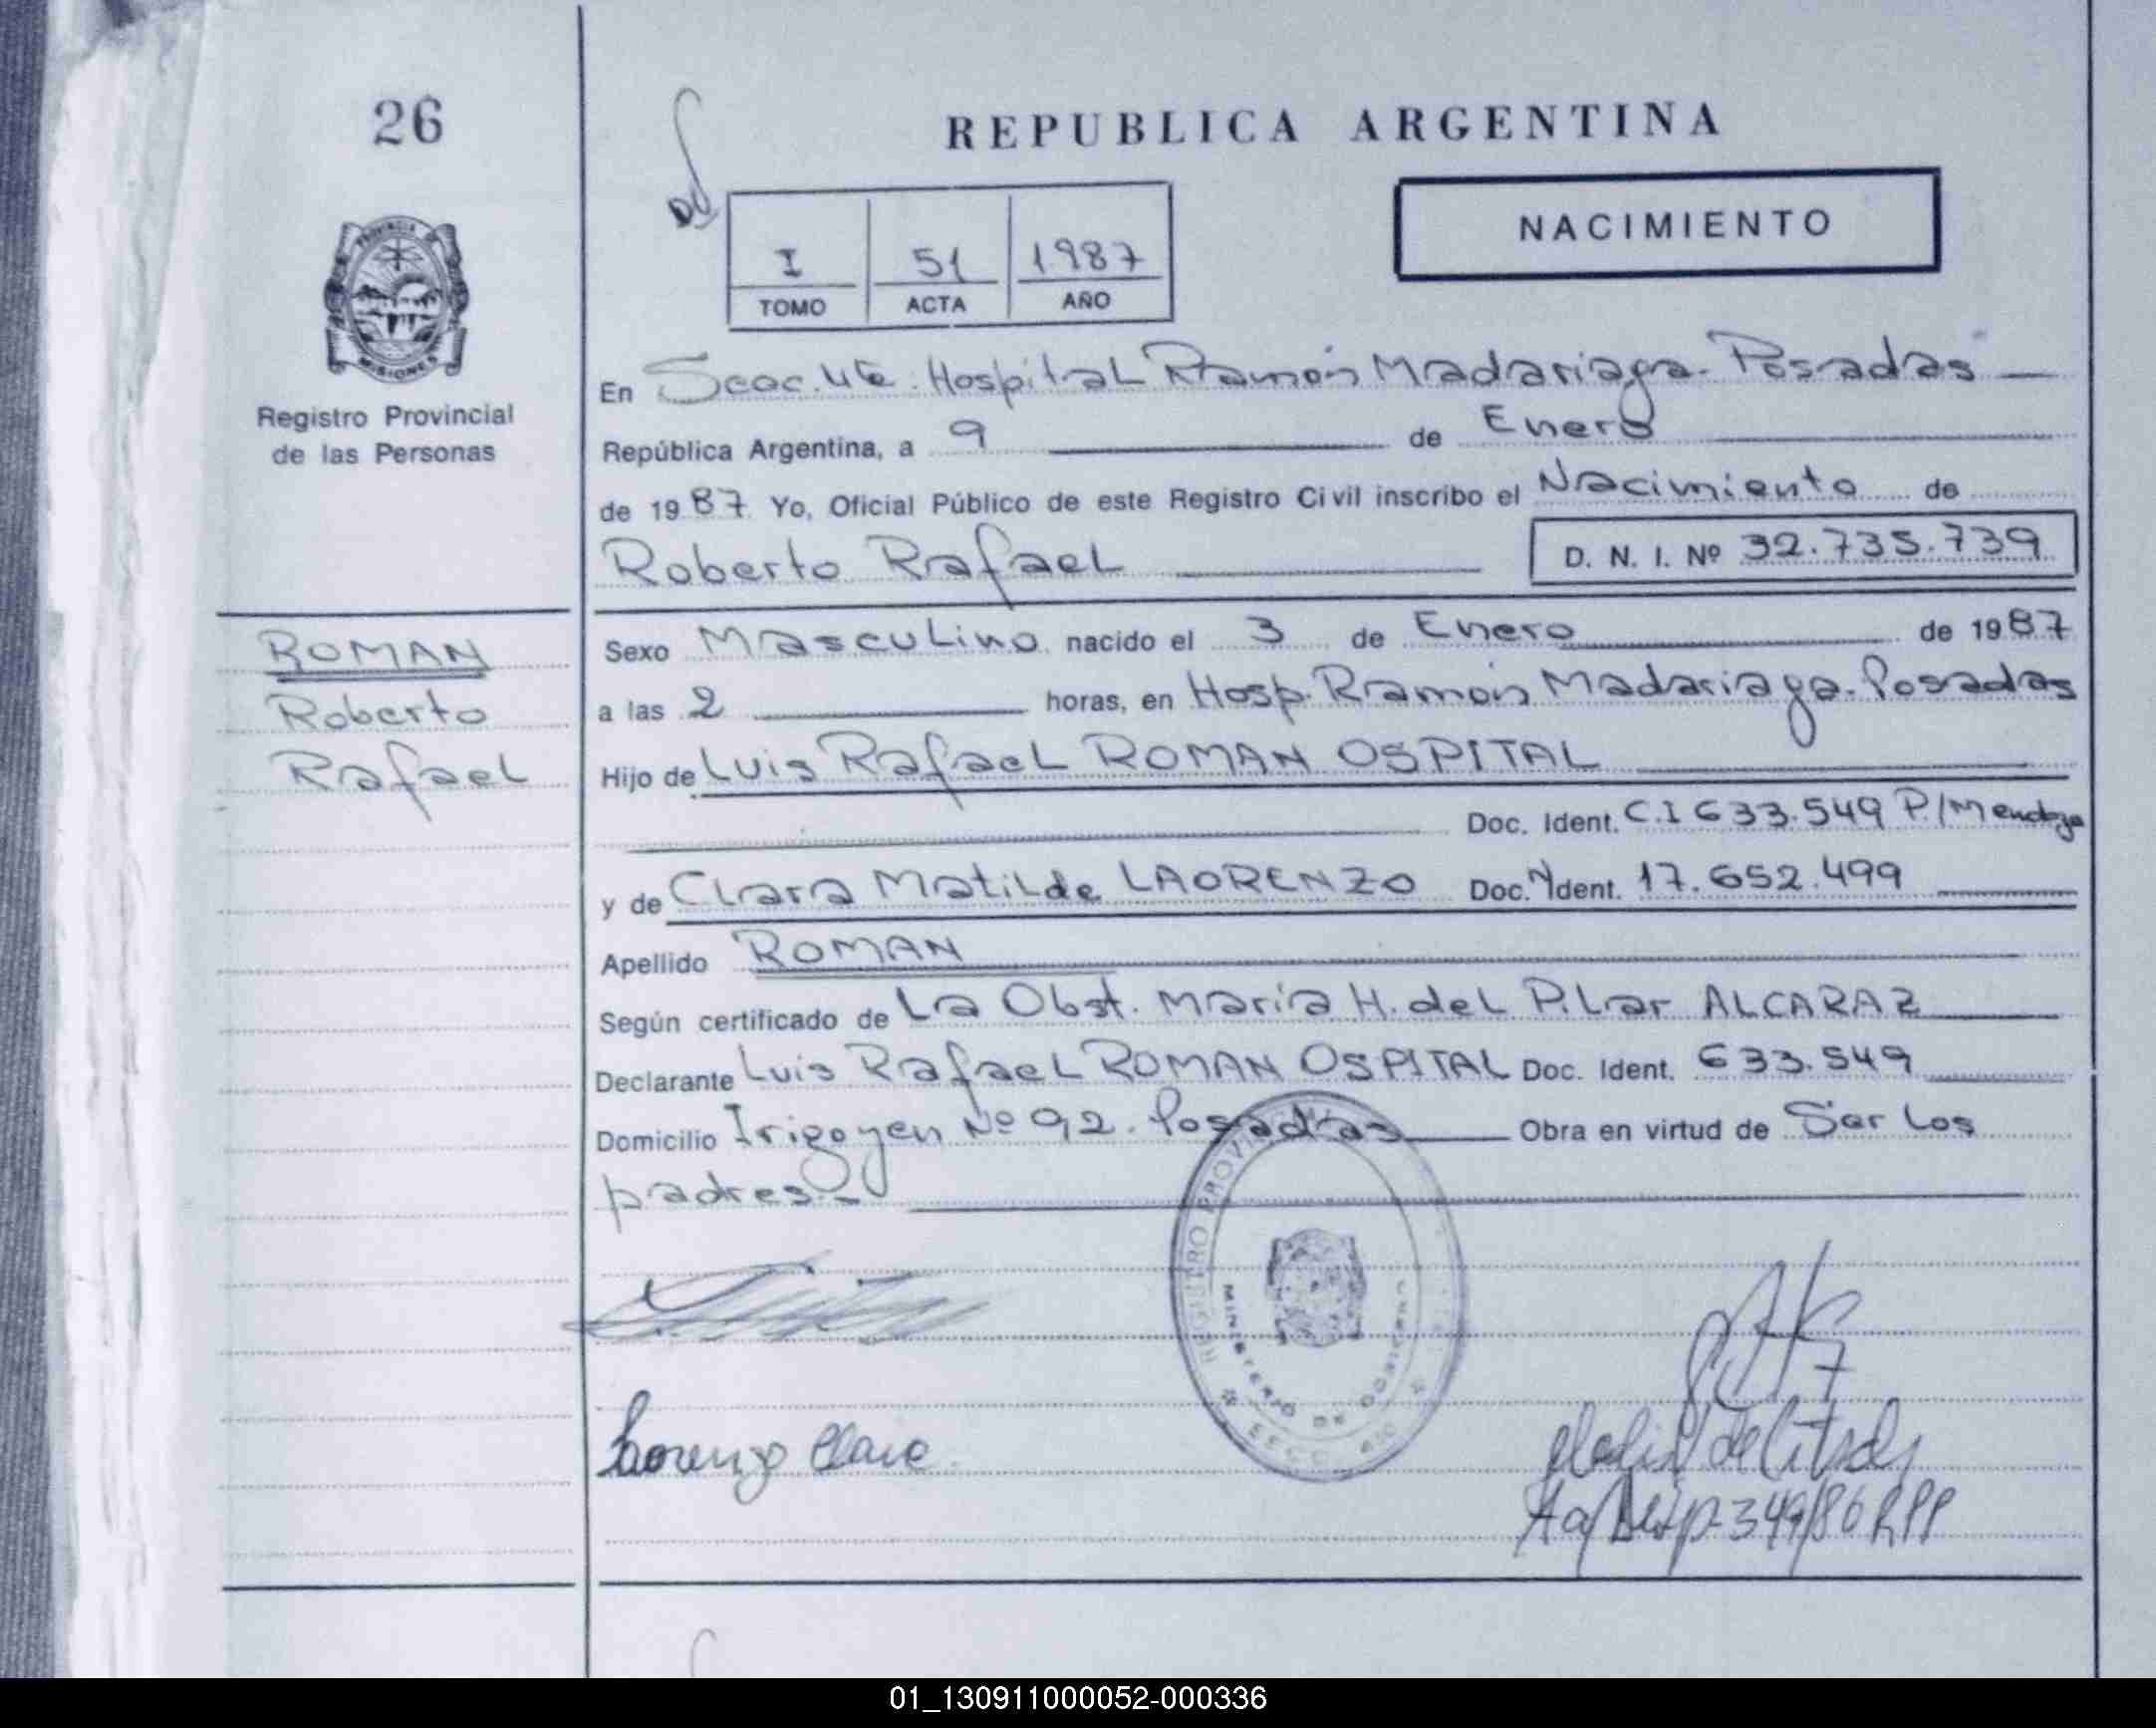 26
REPUBLICA ARGENTINA
NACIMIENTO
I 51 1987
TOMO ACTA AÑO
PROVINCIA DE
MISIONES
Registro Provincial
de las Personas
En Secc. Hospital Ramón Madariaga - Posadas
República Argentina, a 9 de Enero
de 1987 Yo, Oficial Público de este Registro Civil inscribo el Nacimiento de
Roberto Rafael D. N. I. Nº 32.735.739
ROMAN
Roberto
Rafael
Sexo Masculino nacido el 3 de Enero de 1987
a las 2 horas, en Hosp. Ramón Madariaga - Posadas
Hijo de Luis Rafael ROMAN OSPITAL
Doc. Ident. C.I 633.549 P./Mendoza
y de Clara Matilde LAORENZO Doc. Ident. 17.652.499
Apellido ROMAN
Según certificado de La Obst. María H. del Pilar ALCARAZ
Declarante Luis Rafael ROMAN OSPITAL Doc. Ident. 633.549
Domicilio Irigoyen Nº 92. Posadas Obra en virtud de Ser los
padres.-
REGISTRO PROVINCIAL
MINISTERIO DE GOBIERNO
Laorenzo Clara
349/86 RPP
01_130911000052-000336